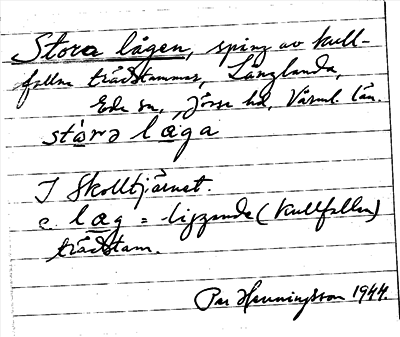 Stora lågen, spång av kull-
fallna trädstammar, Långlanda,
Eda sn, Jösse hd, Värml. län.
stóra lǽga
I Skolltjärnet.
c. læg = liggande (kullfallen)
trädstam.
Per Henningsson 1944.